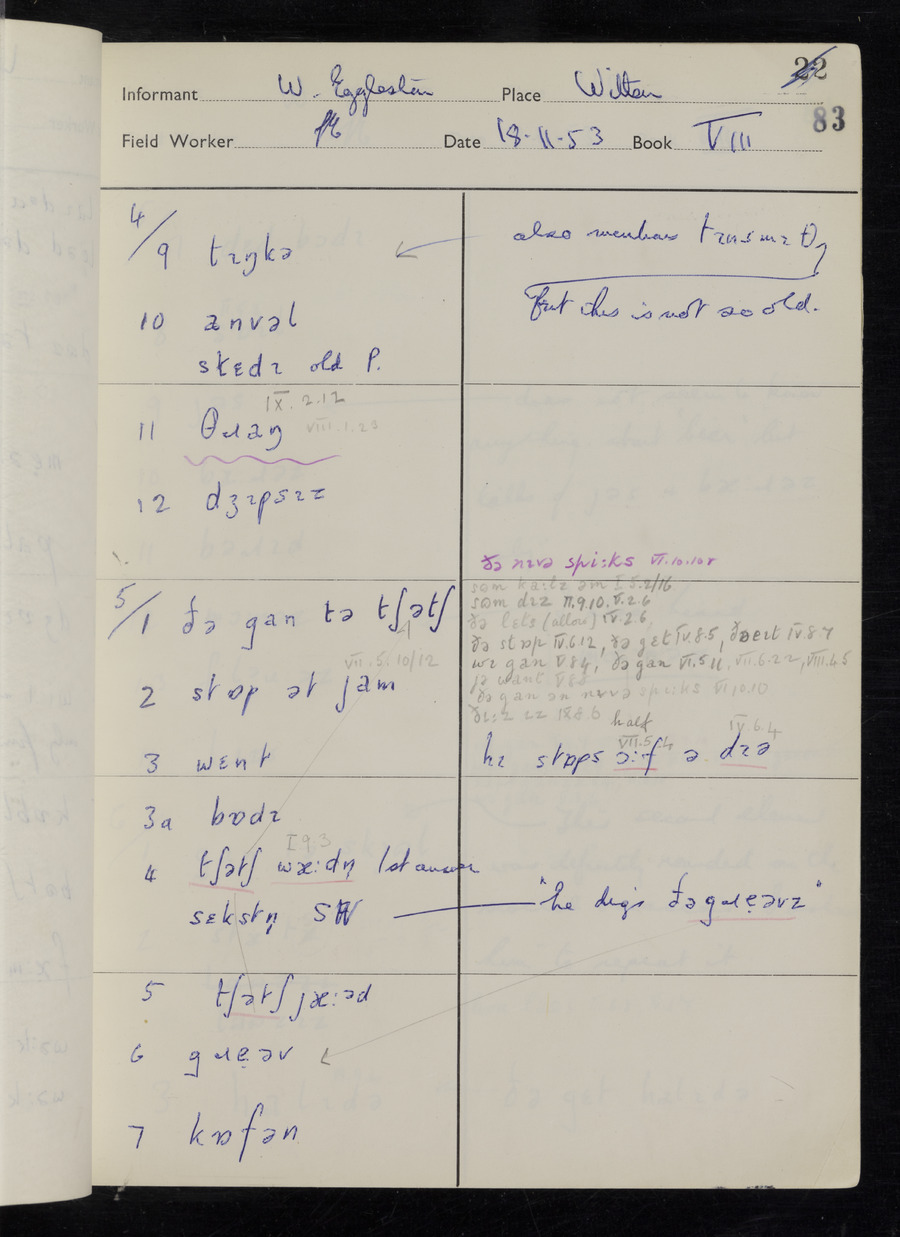 22
Informant W. Eggleston Place Witton
83
Field Worker Date 18-11-53 Book VIII
4/9 tɪŋkə
also tɪnsmɪθ,
but this is not so old.
10 anvəl
stɛdɪ old P.
IX. 2.12
11 θɹaŋ VIII.1.23
12 dʒɪpsɪz
ðə nɪvə spi:ks VI.10.10
5/1 ðə gan tə tʃətʃ
səm ka:lz əm I.5.2/16
səm dɪz II.9.10. V.2.6
ðə lets (allow) IV.2.6
ðə stɒp IV.6.12, ðə get IV.8.5, IV.8.7
wɪ gan V.8.4, ðə gan VI.5.11, VII.6.22, VIII.4.5
VII.5.10/12
2 stɒp ət jam
ðə gan ən nɪvə spi:ks VI.10.10
IX.8.6
half
VII.5.4 IV 6.4
3 wɛnt
hɪ stɒps ɔ:f ə dɪə
3a bɒdɪ
I 9 3
4 tʃətʃ wæ:dn̩ 1st answer
sɛkstn̩ SW
"he digs ðə gɹeəvz"
5 tʃətʃ jæ:əd
6 gɹeəv
7 kɒfən